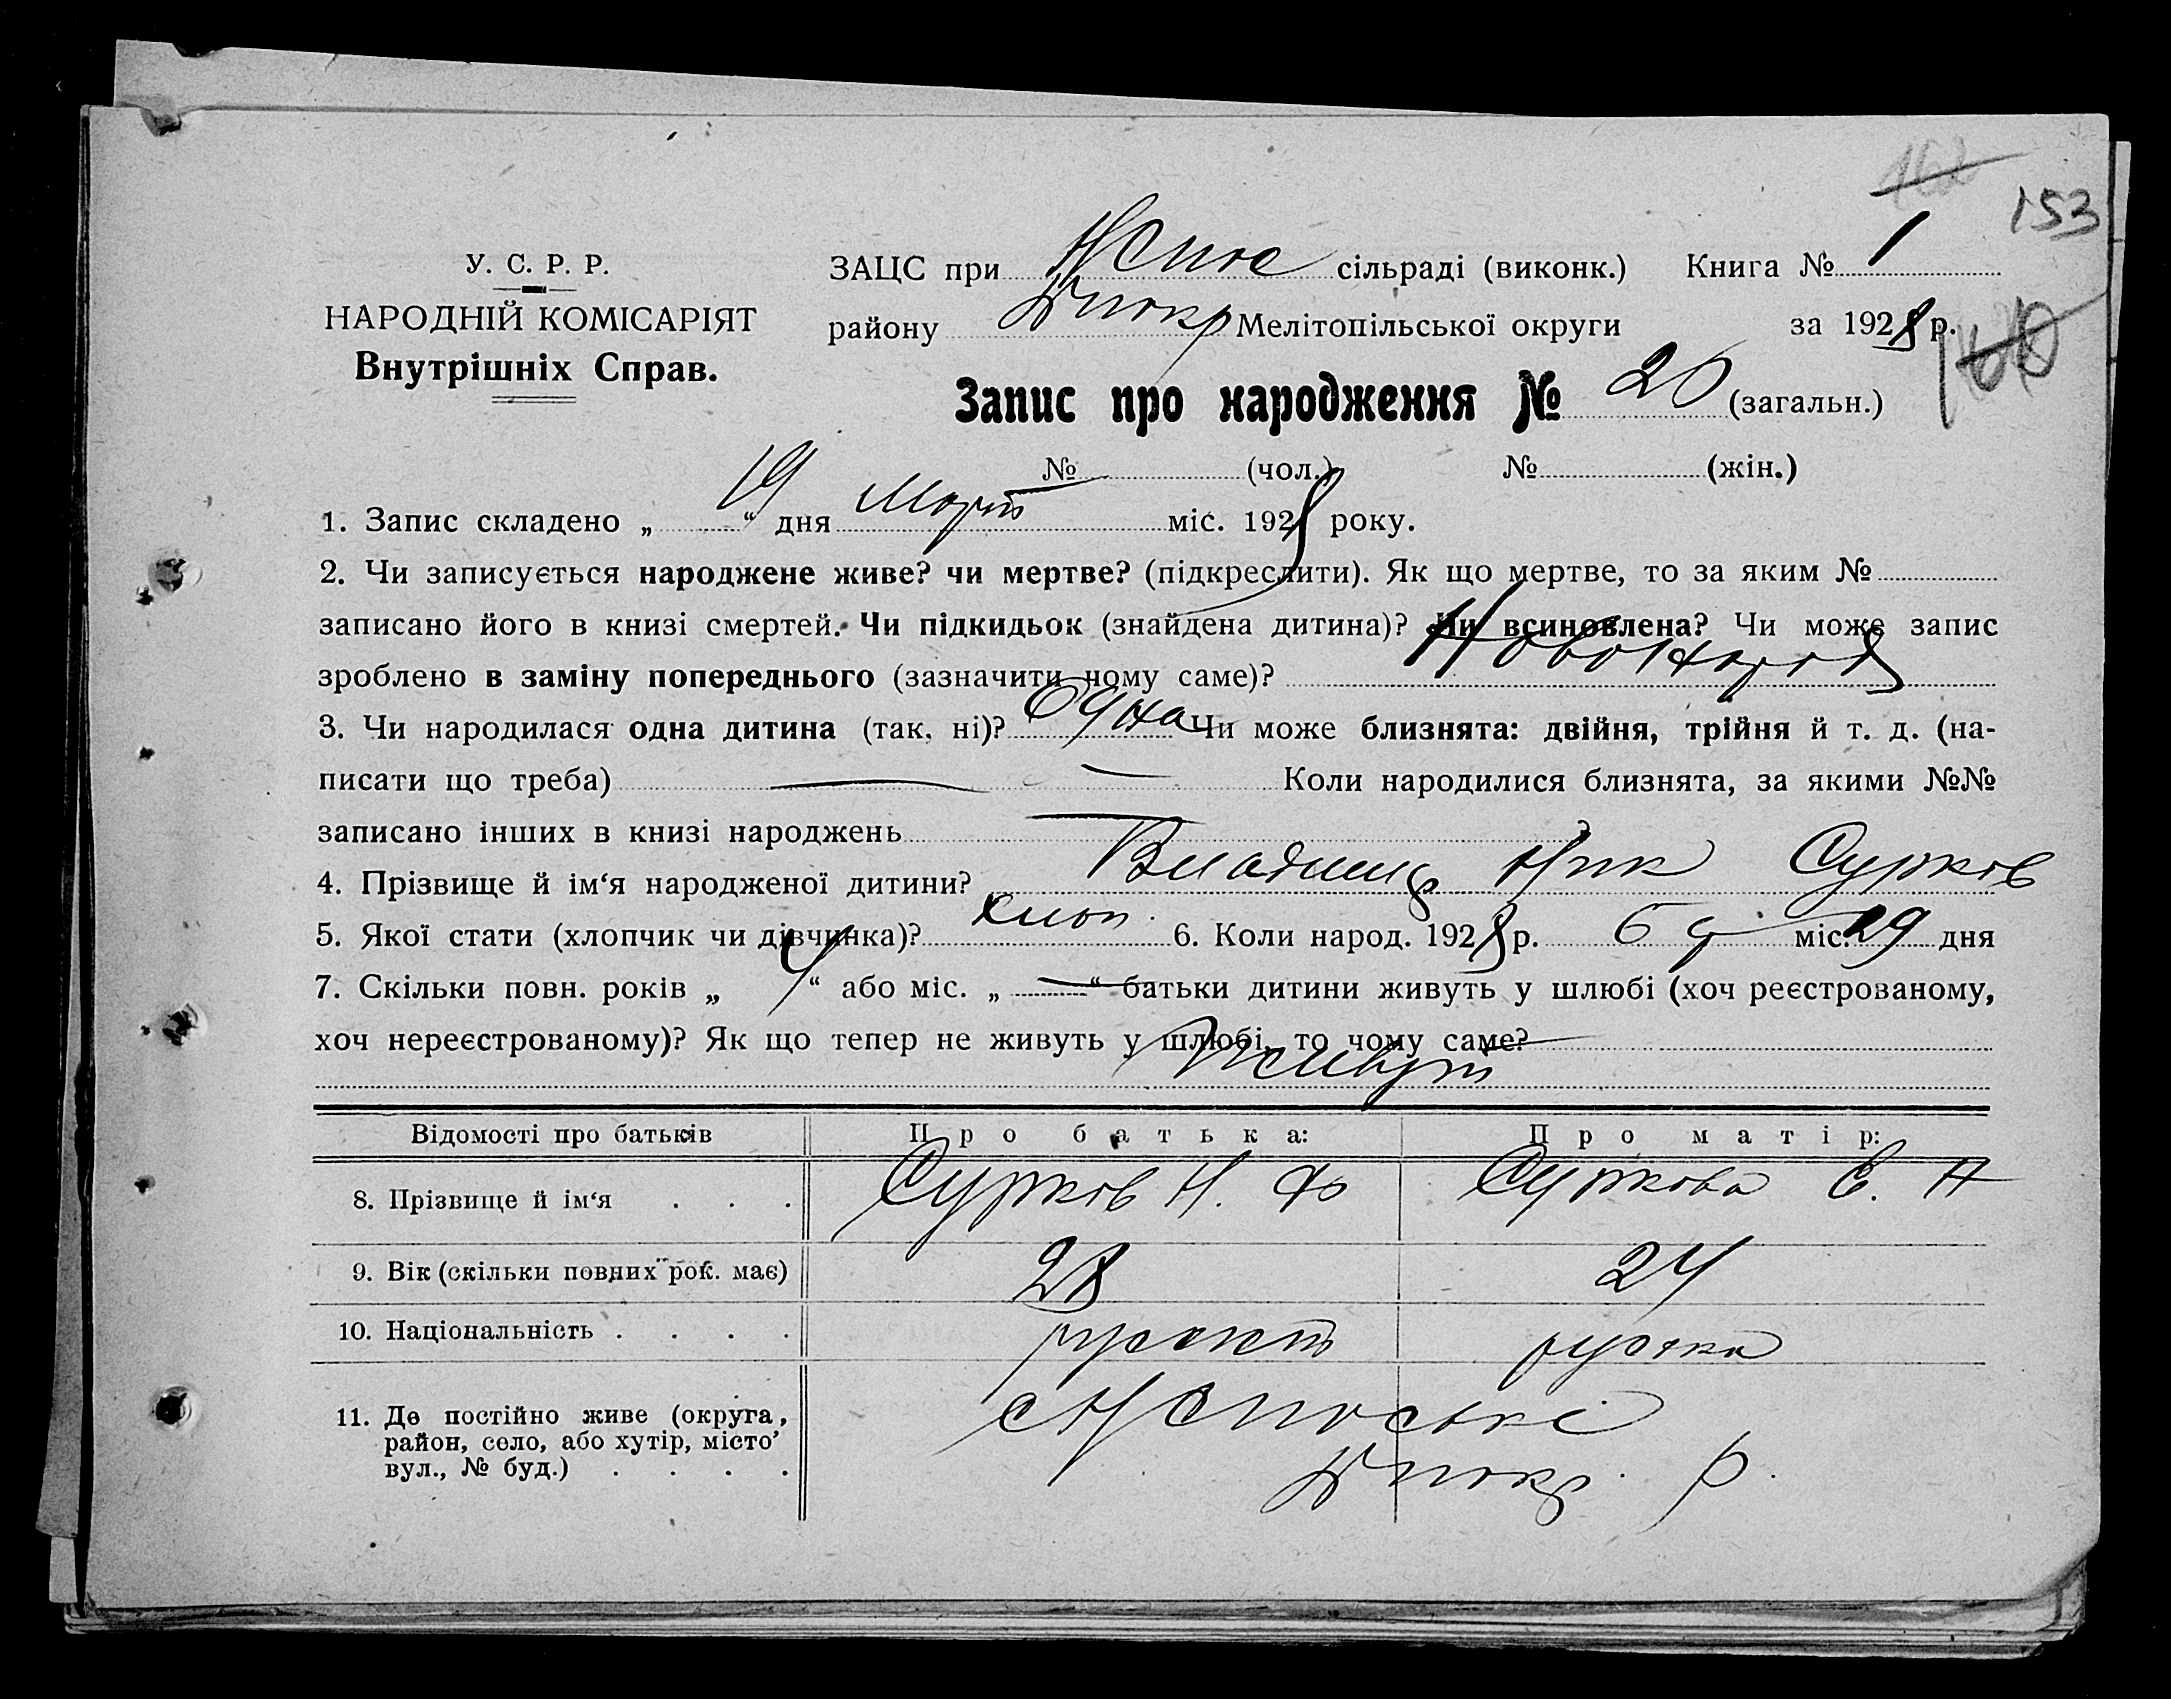 162
153
У. С. Р. Р.
НАРОДНІЙ КОМІСАРІЯТ
Внутрішніх Справ.
ЗАЦС при сільраді (виконк.) Книга № 1
району Мелітопільської округи за 1928 р.
160
Запис про народження № 20 (загальн.)
№ (чол.) № (жін.)
1. Запис складено „ 19 “ дня Март міс. 1928 року.
2. Чи записується народжене живе? чи мертве? (підкреслити). Як що мертве, то за яким №
записано його в книзі смертей. Чи підкидьок (знайдена дитина)? Чи всиновлена? Чи може запис
зроблено в заміну попереднього (зазначити чому саме)?
3. Чи народилася одна дитина (так, ні)? одна Чи може близнята: двійня, трійня й т. д. (на-
писати що треба) Коли народилися близнята, за якими №№
записано інших в книзі народжень
4. Прізвище й ім‘я народженої дитини? Владимир Ник Сурков
5. Якої стати (хлопчик чи дівчинка)? хлоп. 6. Коли народ. 1928 р. міс. 29 дня
7. Скільки повн. років „ 4 “ або міс. „ — “ батьки дитини живуть у шлюбі (хоч реєстрованому,
хоч нереєстрованому)? Як що тепер не живуть у шлюбі, то чому саме?
Живут
Відомості про батьків Про батька: Про матір:
8. Прізвище й ім‘я . . . Сурков Н. Ф Суркова Е. Н
9. Вік (скільки повних рок. має) 28 24
10. Національність . . . . руский руска
11. Де постійно живе (округа,
район, село, або хутір, місто’
вул., № буд.) . . . . р.